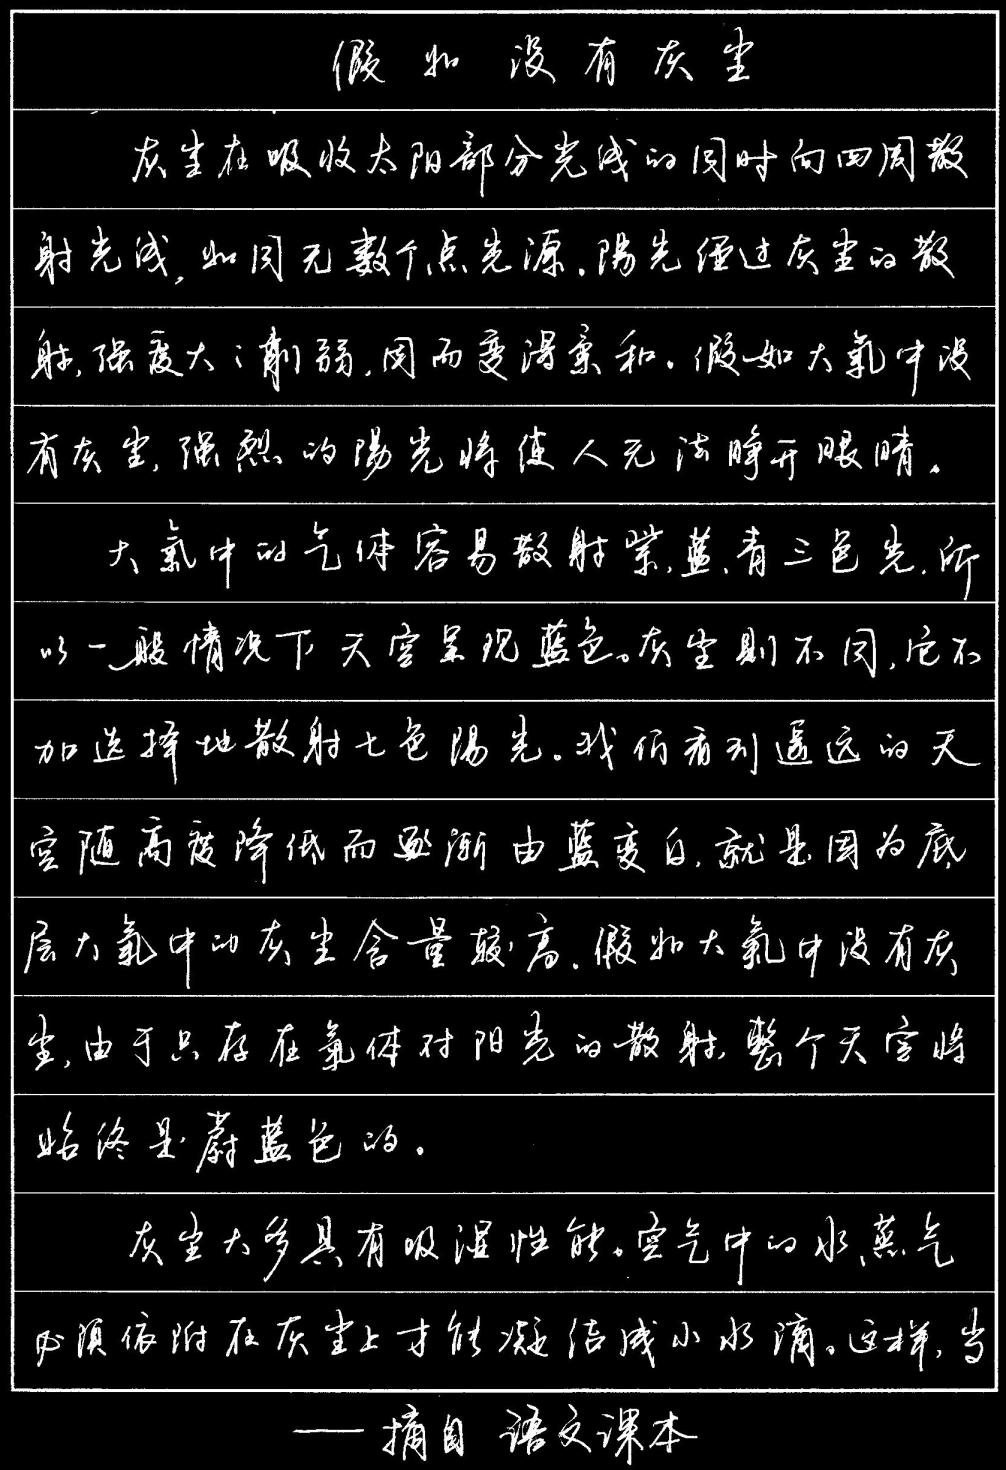 假如没有灰尘
灰尘在吸收太阳部分光线的同时向四周散
射光线,如同无数个点光源。陽光經过灰尘的散
射,强度大々削弱,因而变得柔和。假如大氣中没
有灰尘,强烈的陽光将使人无法睁开眼睛。
大氣中的气体容易散射紫、蓝、青三色光,所
以一般情况下天空呈现蓝色。灰尘则不同,它不
加选择地散射七色陽光。我们看到遥远的天
空随高度降低而逐渐由蓝变白,就是因为底
层大氣中的灰尘含量较高。假如大氣中没有灰
尘,由于只存在氣体对阳光的散射,整个天空将
始终是蔚蓝色的。
灰尘大多具有吸湿性能。空气中的水蒸气
必须依附在灰尘上才能凝结成小水滴。这样,当
——摘自 语文课本